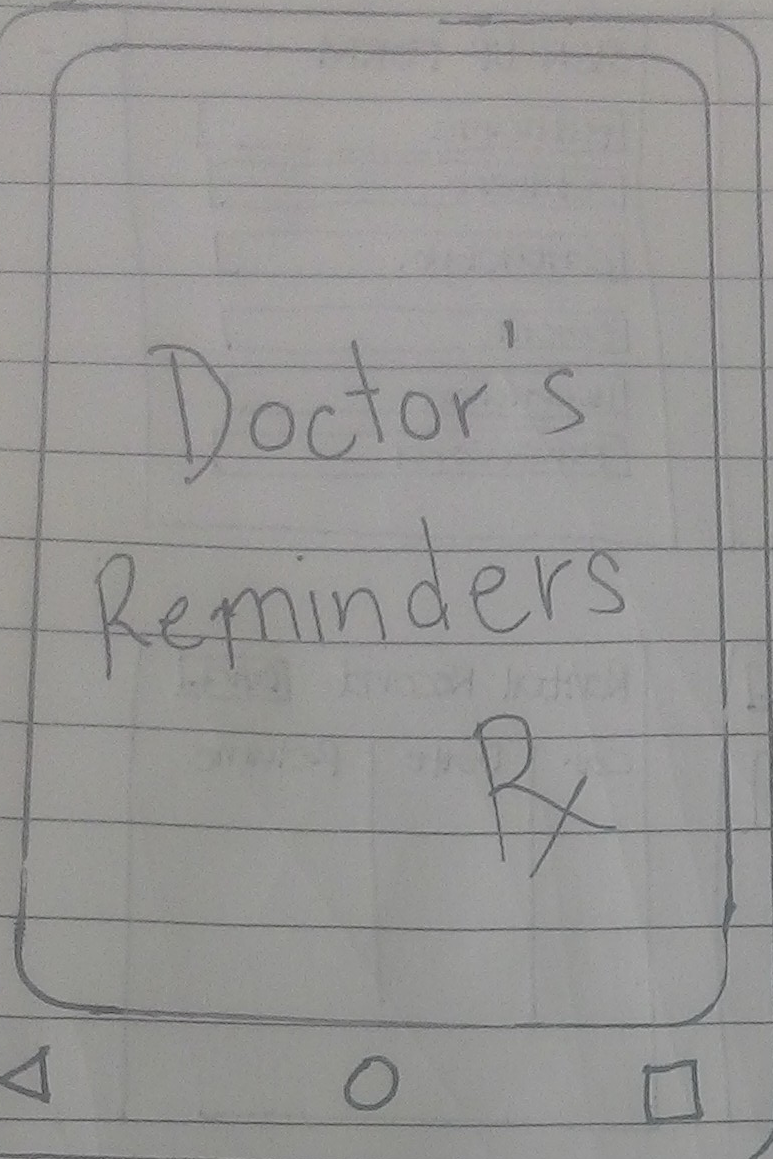 Doctor's
Reminders
Rx